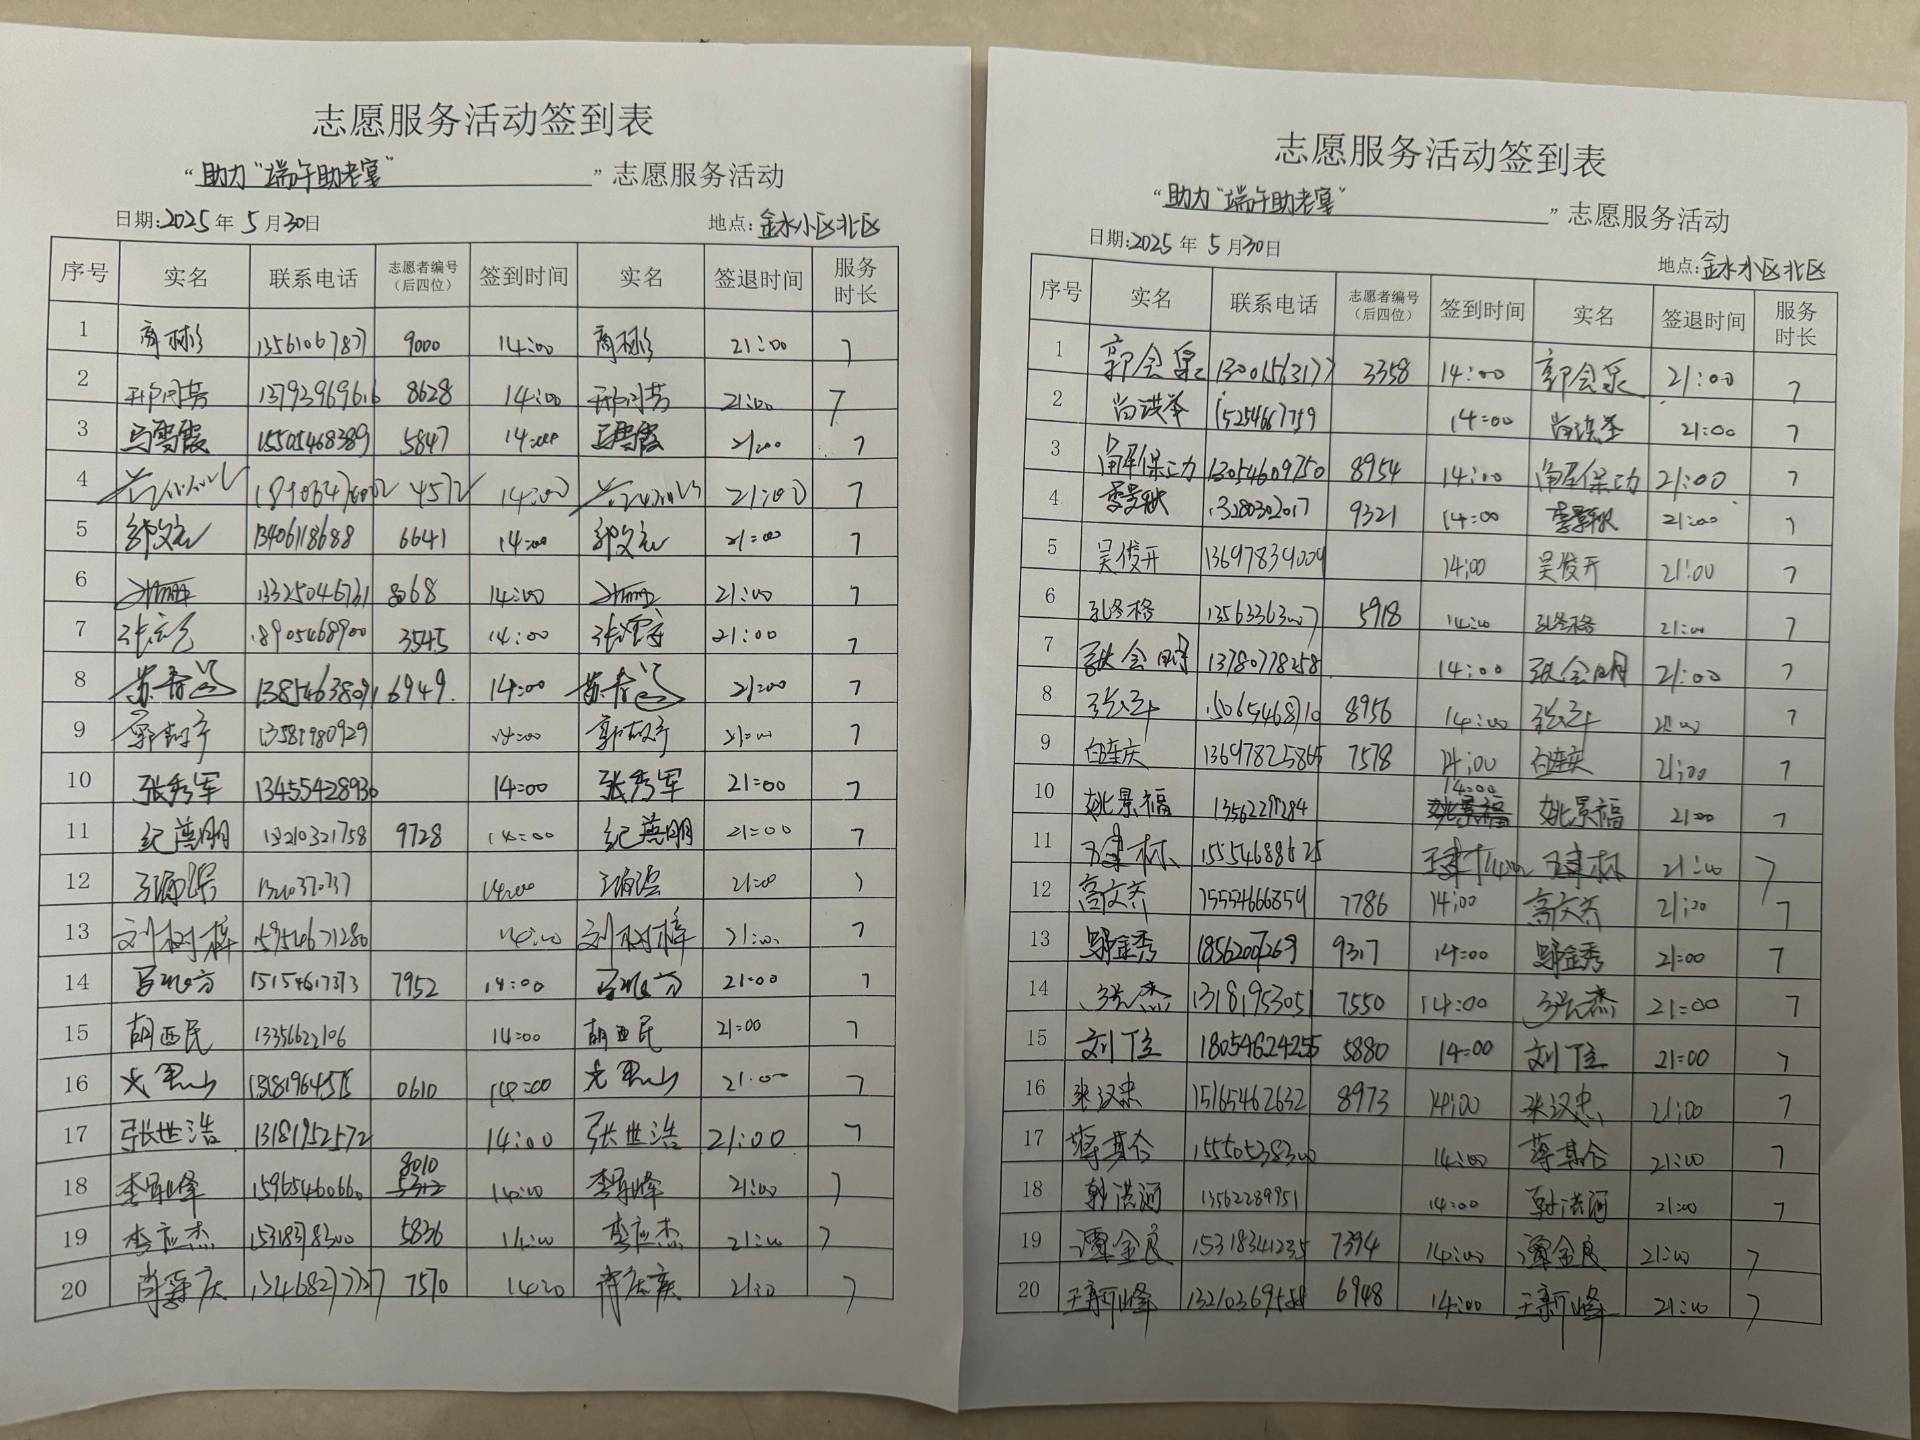 志愿服务活动签到表
“助力“端午助老宴” ”志愿服务活动
日期:2025年5月30日 地点:金水小区北区
序号 实名 联系电话 志愿者编号（后四位） 签到时间 实名 签退时间 服务时长
1 13561067877 9000 14:00 21:00 7
2 13793969616 8628 14:00 21:00 7
3 马雪霞 15505468389 5847 14:00 马雪霞 21:00 7
4 14:00 21:00 7
5 郭文 13406118688 6641 14:00 郭文 21:00 7
6 13325046731 8068 14:00 21:00 7
7 张 18905468900 3545 14:00 张 21:00 7
8 苏春 13854638091 6949 14:00 苏春 21:00 7
9 13581980929 14:00 21:00 7
10 张秀军 13455428930 14:00 张秀军 21:00 7
11 纪燕明 13210321758 9728 14:00 纪燕明 21:00 7
12 14:00 21:00 7
13 刘树梓 15954671280 14:00 刘树梓 21:00 7
14 15154617373 7952 14:00 21:00 7
15 胡西民 13356622106 14:00 胡西民 21:00 7
16 13181964575 0610 14:00 21:00 7
17 张世浩 13181952572 14:00 张世浩 21:00 7
18 李军峰 15965460660 8010 14:00 李军峰 21:00 7
19 李应杰 15318378300 5836 14:00 李应杰 21:00 7
20 13468277727 7570 14:00 21:00 7
志愿服务活动签到表
“助力“端午助老宴” ”志愿服务活动
日期:2025年5月30日 地点:金水小区北区
序号 实名 联系电话 志愿者编号（后四位） 签到时间 实名 签退时间 服务时长
1 郭会泉 13001563177 3358 14:00 郭会泉 21:00 7
2 尚洪举 15254667759 14:00 尚洪举 21:00 7
3 13054609750 8954 14:00 21:00 7
4 李景秋 13280302017 9321 14:00 李景秋 21:00 7
5 吴俊开 13697834009 14:00 吴俊开 21:00 7
6 孔冬格 13563363007 5918 14:00 孔冬格 21:00 7
7 张会明 13780778258 14:00 张会明 21:00 7
8 15065468710 8956 14:00 21:00 7
9 白连庆 13697825865 7578 14:00 白连庆 21:00 7
10 姚景福 13562277284 14:00 姚景福 21:00 7
11 王建林 15554688625 14:00 王建林 21:00 7
12 高文杰 15554666859 7786 14:00 高文杰 21:00 7
13 金秀 18562007269 9317 14:00 金秀 21:00 7
14 张杰 13181953051 7550 14:00 张杰 21:00 7
15 刘佳 18054624255 5880 14:00 刘佳 21:00 7
16 张汉忠 15165462632 8973 14:00 张汉忠 21:00 7
17 蒋其合 15550538300 14:00 蒋其合 21:00 7
18 韩洪河 13562289951 14:00 韩洪河 21:00 7
19 谭金良 15318341235 7394 14:00 谭金良 21:00 7
20 王新峰 13210369558 6948 14:00 王新峰 21:00 7